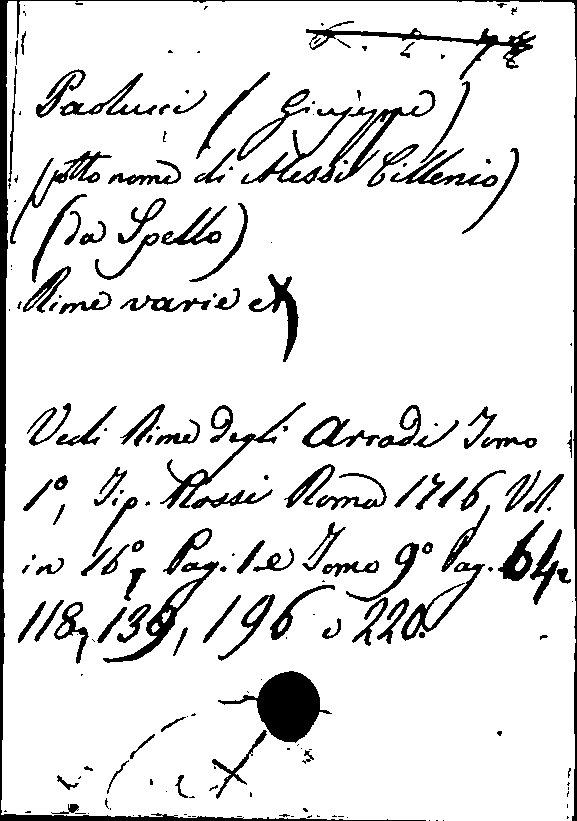 Paolucci (Giuseppe)
(sotto nome di Alessi Cillenio)
(da Spello)
Rime varie
Vedi Rime degli Arcadi Tomo
1º, Tip. Rossi Roma 1716, Vol.
in 16º, Pag. 1 e Tomo 9º Pag. 64,
118, 139, 196 e 220.